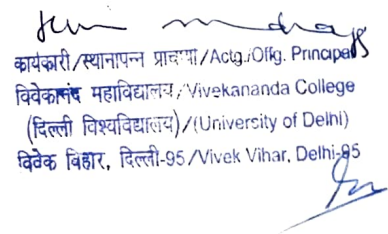 कार्यकारी/स्थानापन्न प्राचार्या/Actg./Offg. Principal
विवेकानंद महाविद्यालय/Vivekananda College
(दिल्ली विश्वविद्यालय)/(University of Delhi)
विवेक विहार, दिल्ली-95/Vivek Vihar, Delhi-95